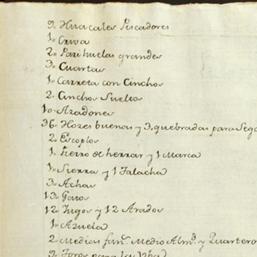 9. Huacales Pescadores
1. Criva
2. Parihuelas grandes
3. Cuartas
1. Carreta con Cinchos
2. Cinchos Suelto
10. Azadones
36. Hozes buenas y 3. quebradas para Sega
2. Escoplos
1. Fierro de herrar y 1 Marca
1. Sierra y 1 Falacha
3. Achas
12 Yugos y 12 Arados
1. Azuela
2 Medias fan.^s Medio Alm.^d y Quartero
para la Uba